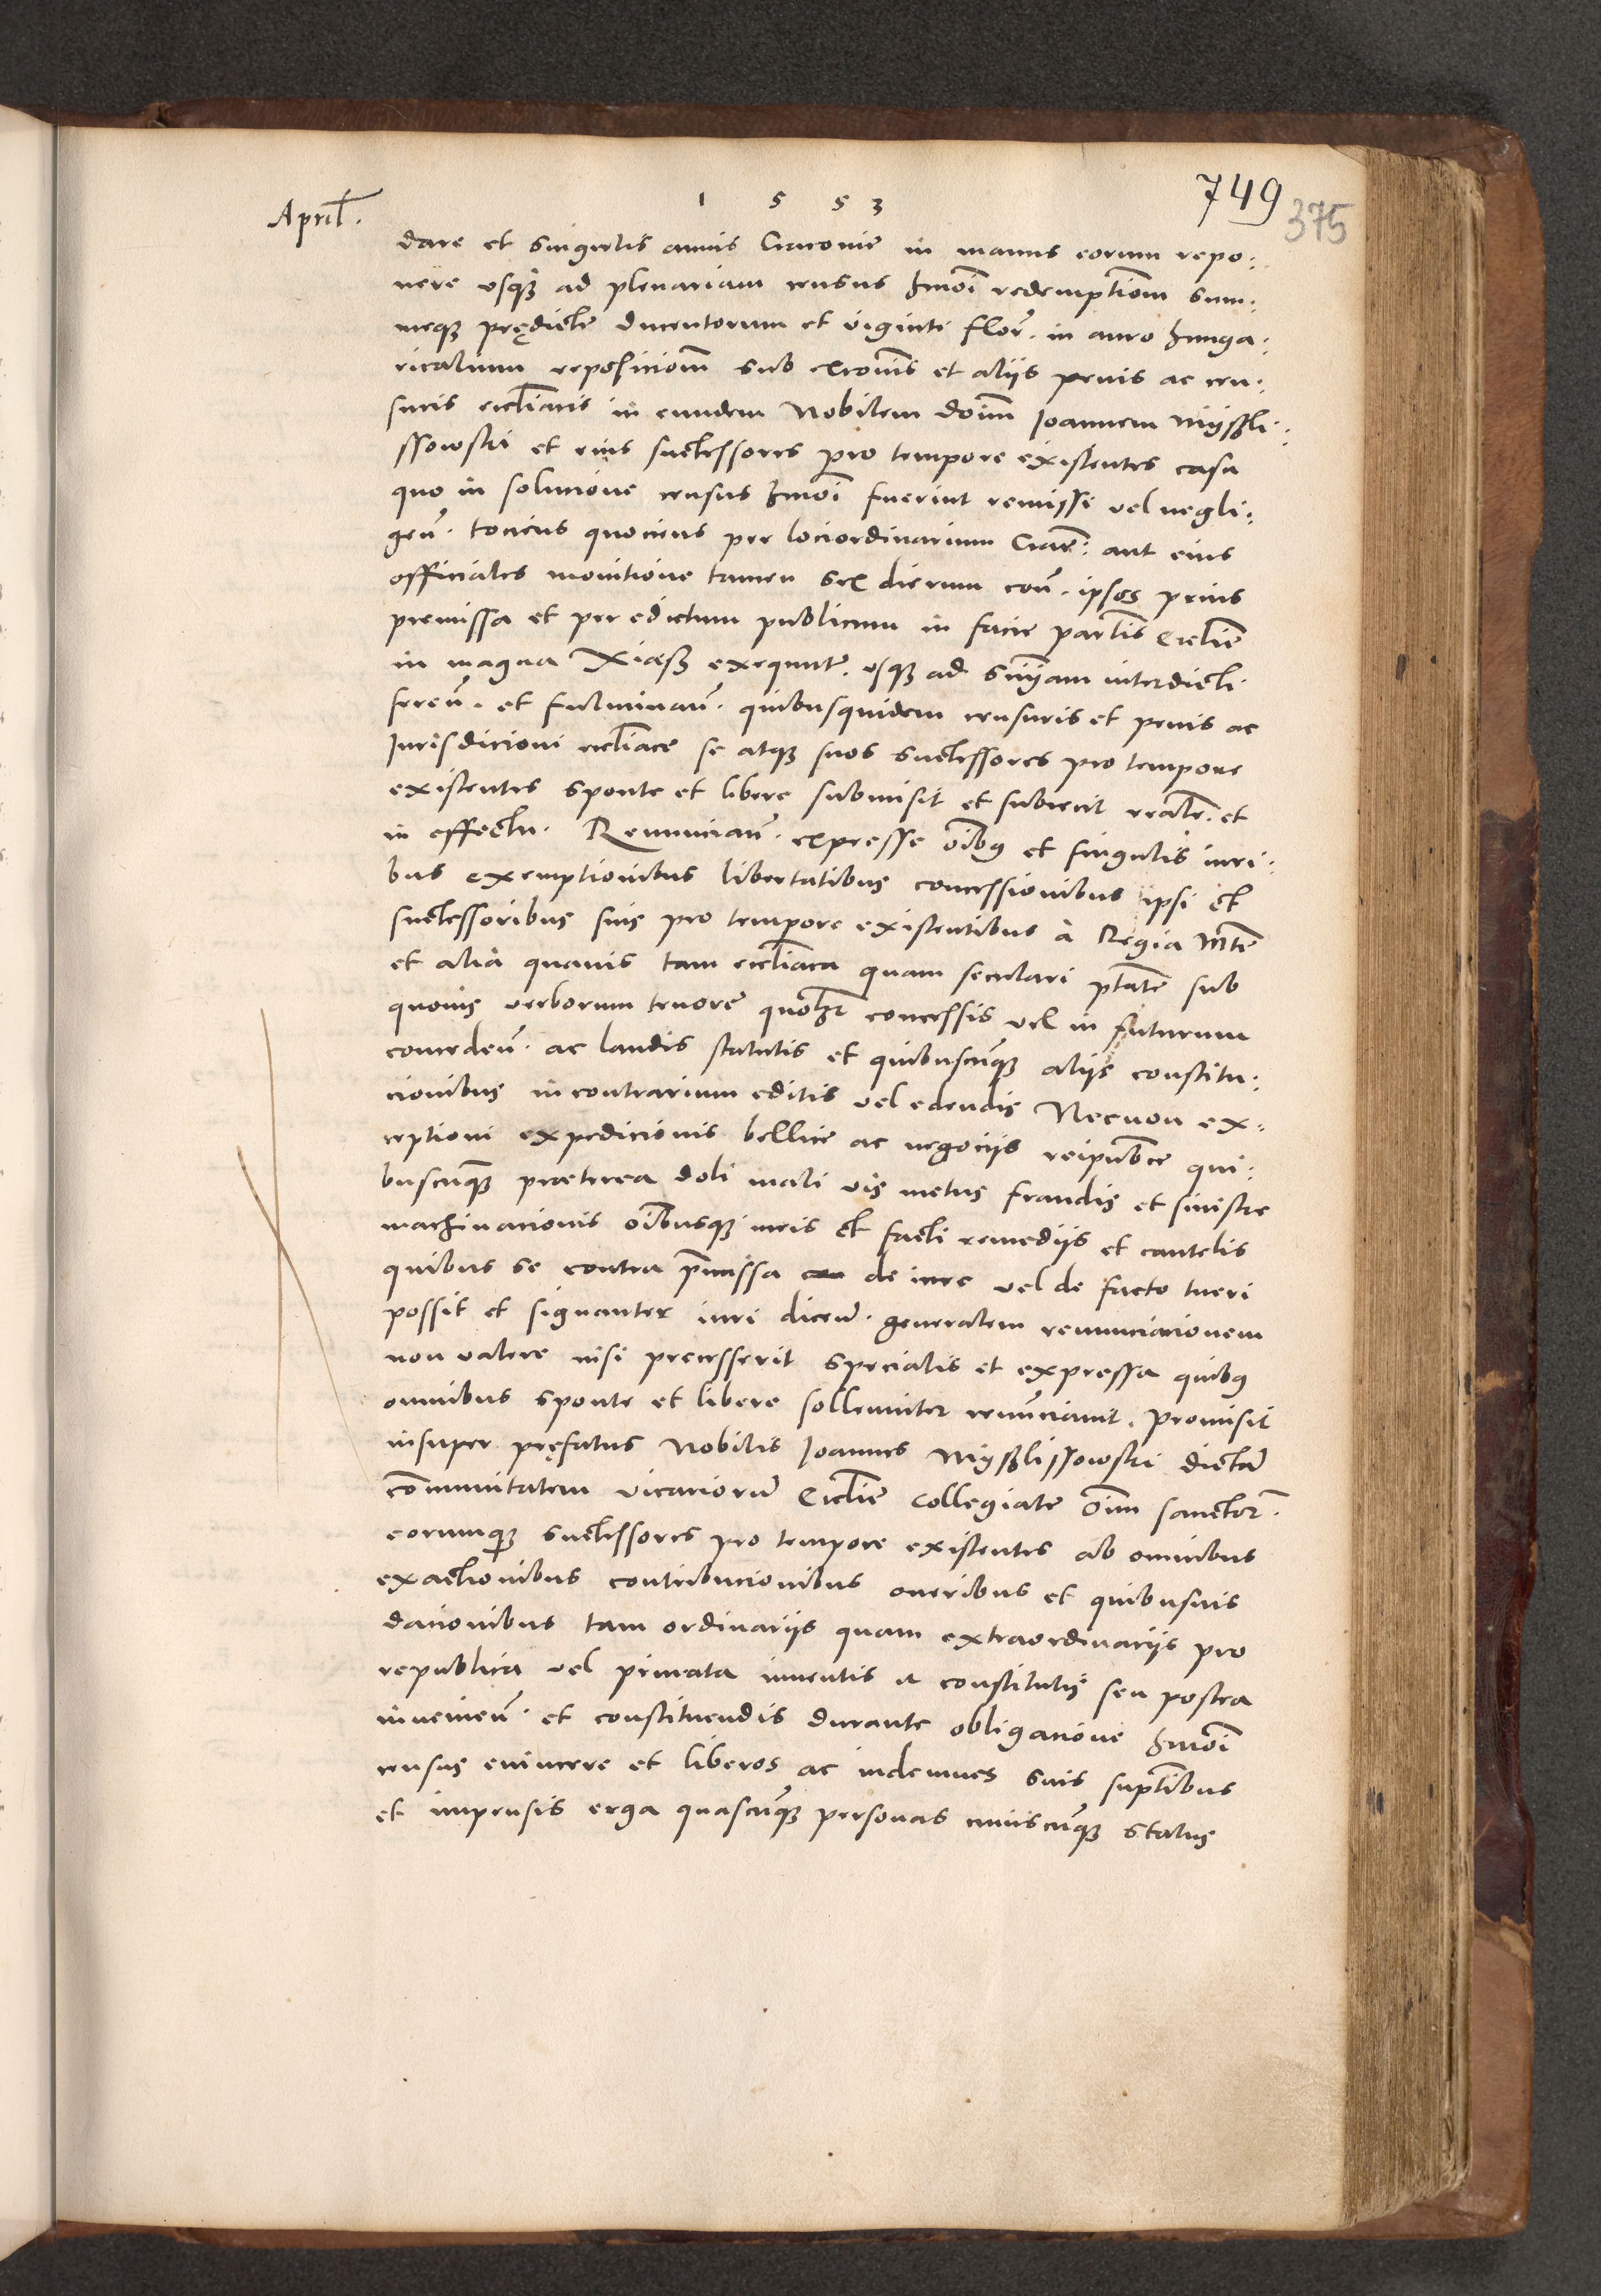 1553
749
375
April.
dare et singulis annis Cracovie in manus eorum repo:
nere usq3 ad plenariam census hmõi redemptiõm sum:
meq3 prędicte ducentorum et viginti flor̃. in auro hunga:
ricalium reposiciom̃ sub excõis et aliis penis ac cen:
suris ecclĩacis in eundem Nobilem dom̃ Joannem Myszli:
ssowski et eius successores pro tempore existentes casu
quo in solucione census hmõi fuerint remissi vel negli:
geñ. tocies quociens per lociordinarium Crac̃: aut eius
officiales monitione tamen sex dierum coñ. ipsos prius
premissa et per edictum publicum in facie parr̃lis Ecclĩe
in magna Xiasz exequuñt. usq3 ad sup̃mam interdicti
fereñ. et fulminañ. quibusquidem censuris et penis ac
Jurisdicioni ecclĩace se atq3 suos successores pro tempore
existentes sponte et libere submisit et subiecit realr̃. et
in effectu. Renunciañ. expresse oĩbus et singulis iuri:
bus exemptionibus libertatibus concessionibus ipsi et
successoribus suis pro tempore existentibus à Regia Mt̃e
et alia quavis tam ecclĩaca quam seculari p̃tate sub
quovis verborum tenore quolibet concessis vel in futurum
concedeñ. ac laudis statutis et quibuscũq3 aliis constitu:
cionibus in contrarium editis vel edendis Necnon ex:
ceptioni expedicionis bellice ac negociis reipub̃ce qui:
buscũq3 praeterea doli mali vis metus fraudis et sinistre
machinacionis oĩbusq3 iuris et facti remediis et cautelis
quibus se contra p̃missa de iure vel de facto tueri
possit et signanter iuri diceñ. generalem renunciacionem
non valere nisi precesserit specialis et expressa quibus
omnibus sponte et libere sollemniter renũnciavit. Promisit
insuper pręfatus Nobilis Joannes Myszlissowski dictã
cõmmunitatem vicariorũ Ecclĩe Collegiate Oĩm sanctor̃.
eorumq3 successores pro tempore existentes ab omnibus
exactionibus contribucionibus oneribus et quibusvis
dacionibus tam ordinariis quam extraordinariis pro
republica vel privata inventis et constitutis seu postea
invenieñ. et constituendis durante obligacione hmõi
census evincere et liberos ac indemnes suis sumptibus
et impensis erga quascũq3 personas cuiuscũq3 status